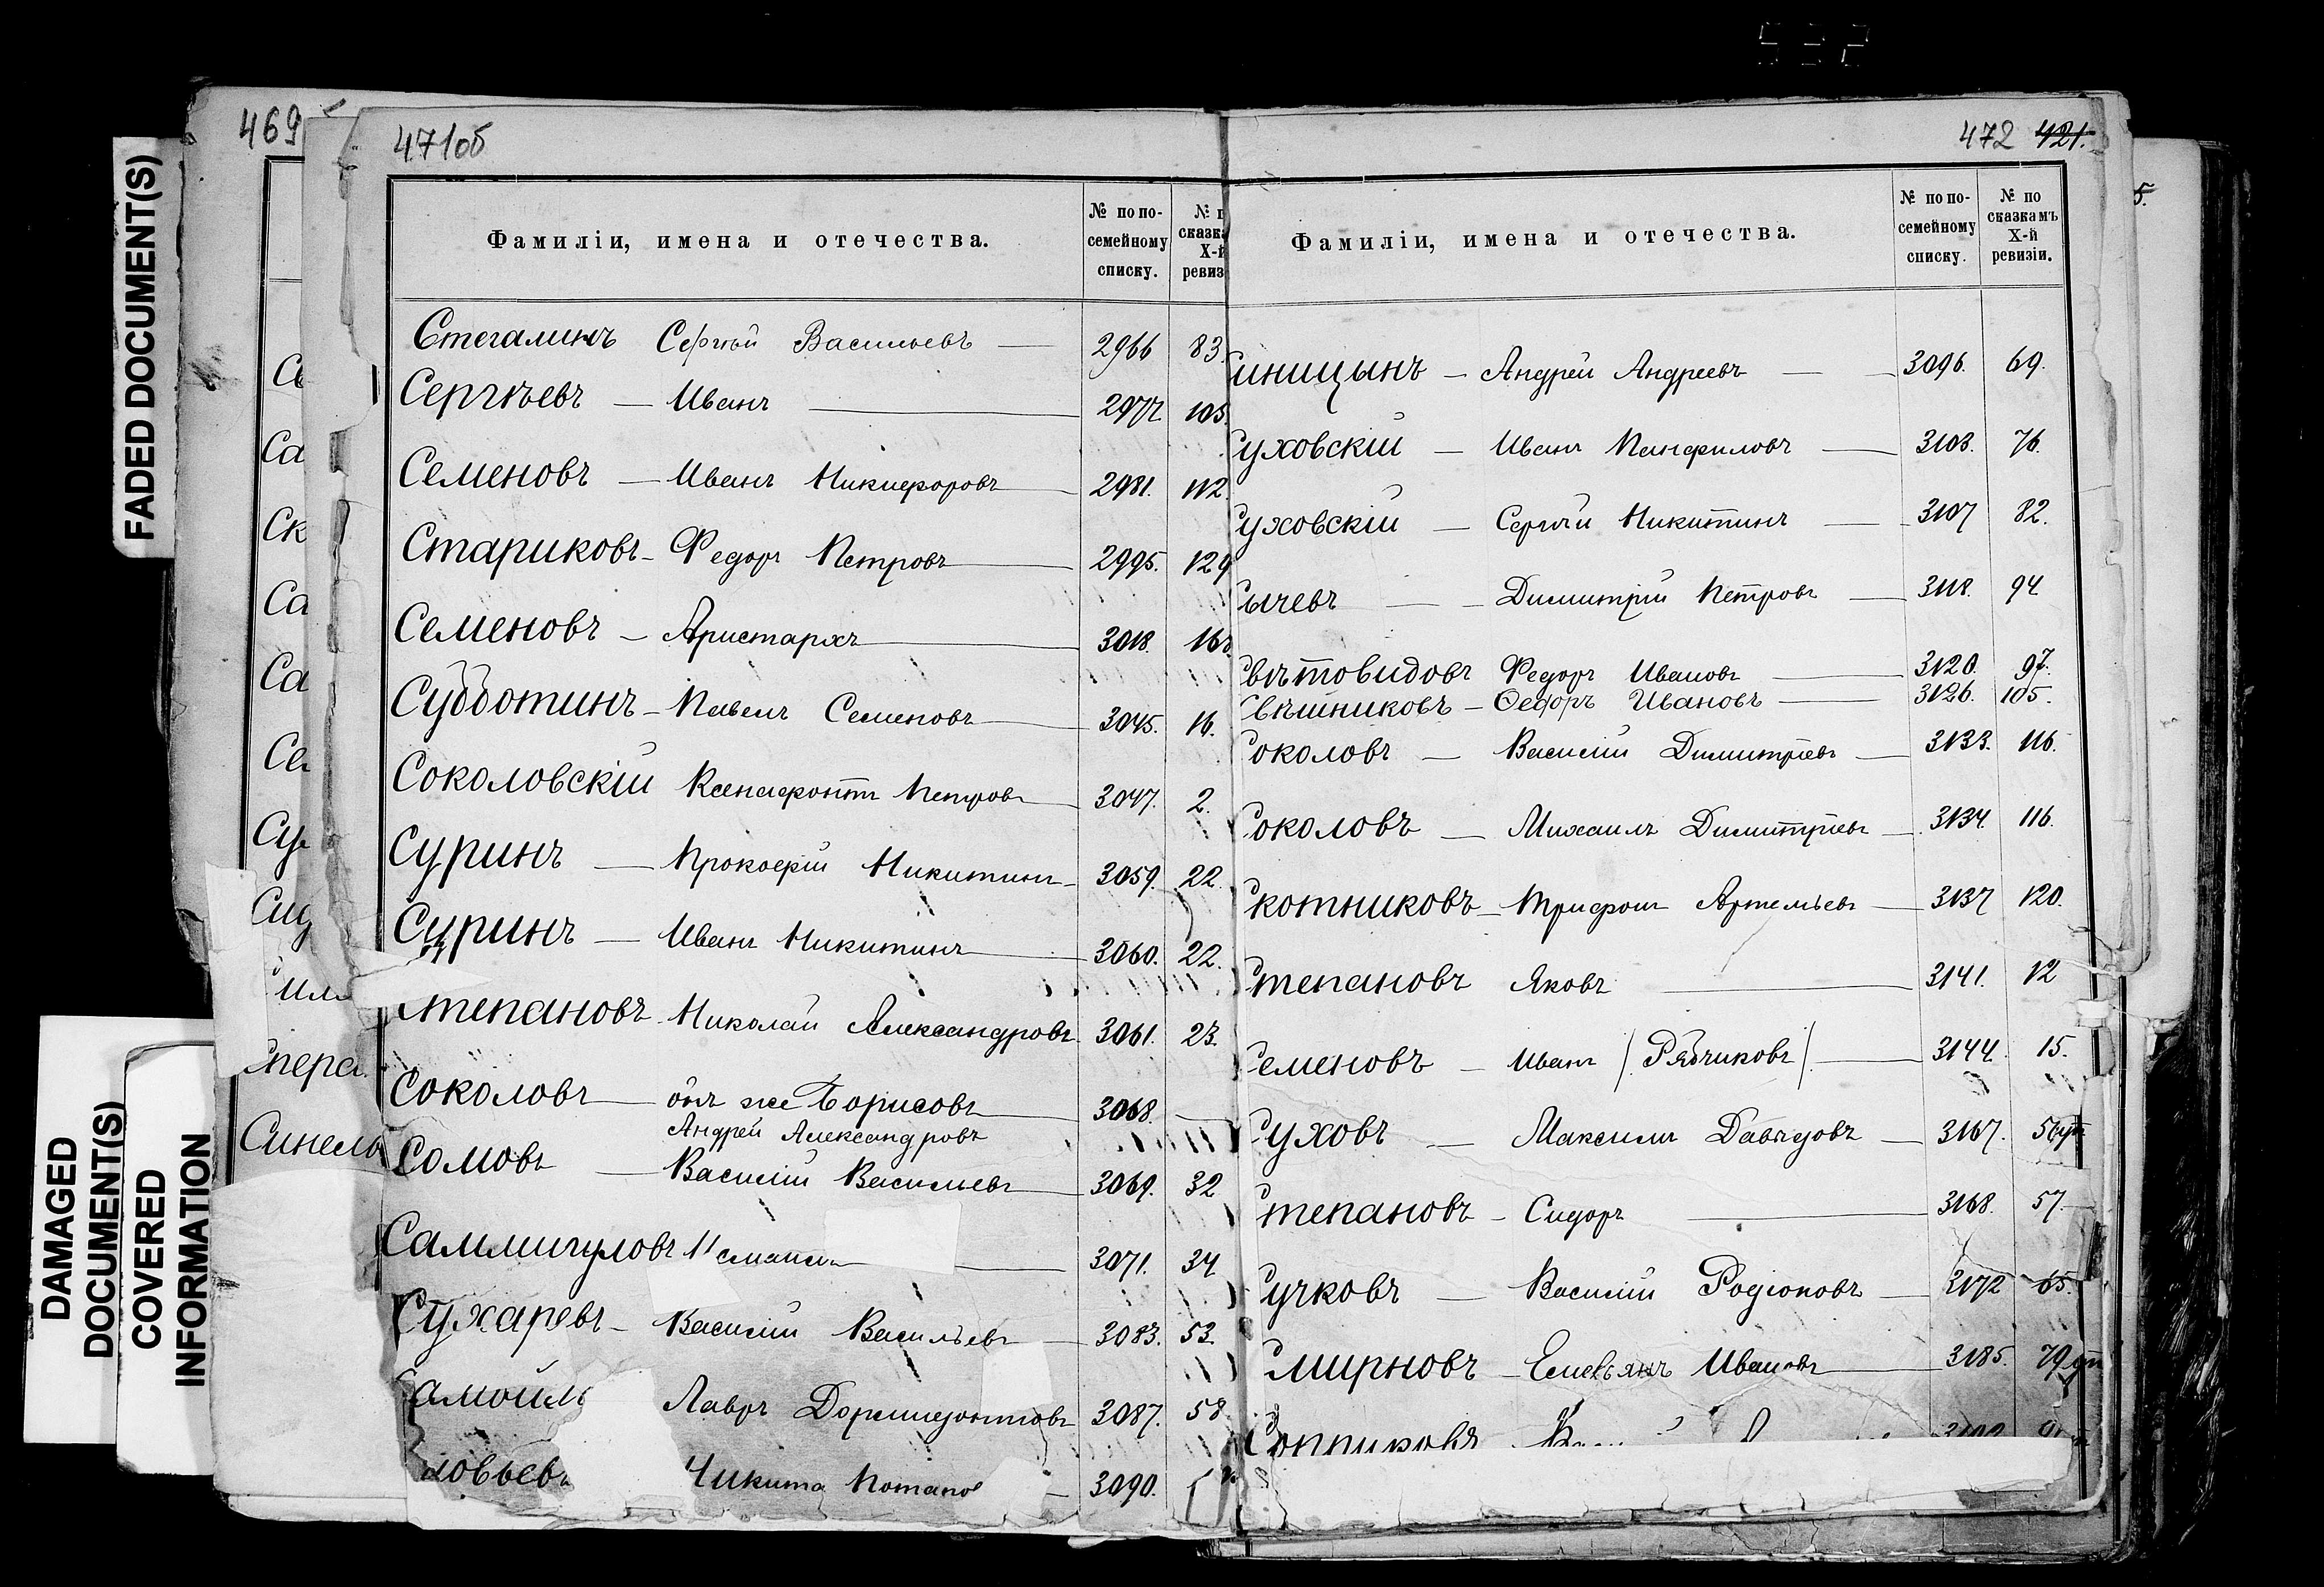 532
469
471об
FADED DOCUMENT(S)
DAMAGED
DOCUMENT(S)
COVERED
INFORMATION
Фамиліи, имена и отечества.
№ по по-
семейному
списку.
№ п
сказка
Х-й
ревиз
Стегалинъ Сергѣй Васильевъ — 2966 83.
Сергѣевъ — Иванъ — 2977 105
Семеновъ — Иванъ Никифоровъ 2981. 112.
Стариковъ — Федоръ Петровъ 2995. 129
Семеновъ — Аристархъ 3018. 168
Субботинъ — Павелъ Семеновъ 3045. 16.
Соколовскій Ксенофонтъ Петровъ 3047. 2.
Суринъ — Прокофій Никитинъ 3059. 22.
Суринъ — Иванъ Никитинъ 3060. 22.
Степановъ Николай Александровъ 3061. 23.
Соколовъ — онъ же Борисовъ 3068. —
Андрей Александровъ
Сомовъ — Василій Васильевъ 3069. 32
3071. 34
Сухаревъ — Василій Васильевъ 3083. 53.
амойл Лавръ Дормидонтовъ 3087. 58
ловьевъ Никита Потапов 3090.
472 421.
Фамиліи, имена и отечества.
№ по по-
семейному
списку.
№ по
сказкамъ
Х-й
ревизіи.
Синицынъ — Андрей Андреевъ — 3096. 69.
Суховскій — Иванъ Панфиловъ — 3103. 76.
Суховскій — Сергѣй Никитинъ — 3107 82.
Сычевъ — Димитрій Петровъ — 3118. 94
Свѣтовидовъ Федоръ Ивановъ — 3120. 97.
Свѣшниковъ — Ѳедоръ Ивановъ — 3126. 105.
Соколовъ — Василій Димитріевъ — 3133. 116.
Соколовъ — Михаилъ Димитріевъ — 3134. 116.
Скотниковъ — Трифонъ Артемьевъ — 3137 120.
Степановъ Яковъ — 3141. 12
Семеновъ — Иванъ (Рябчиковъ) — 3144. 15.
Суховъ — Максимъ Давыдовъ — 3167. 56
Степановъ — Сидоръ — 3168. 57.
Сучковъ — Василій Родіоновъ — 3172 65.
Смирновъ — Емельянъ Ивановъ — 3185. 79